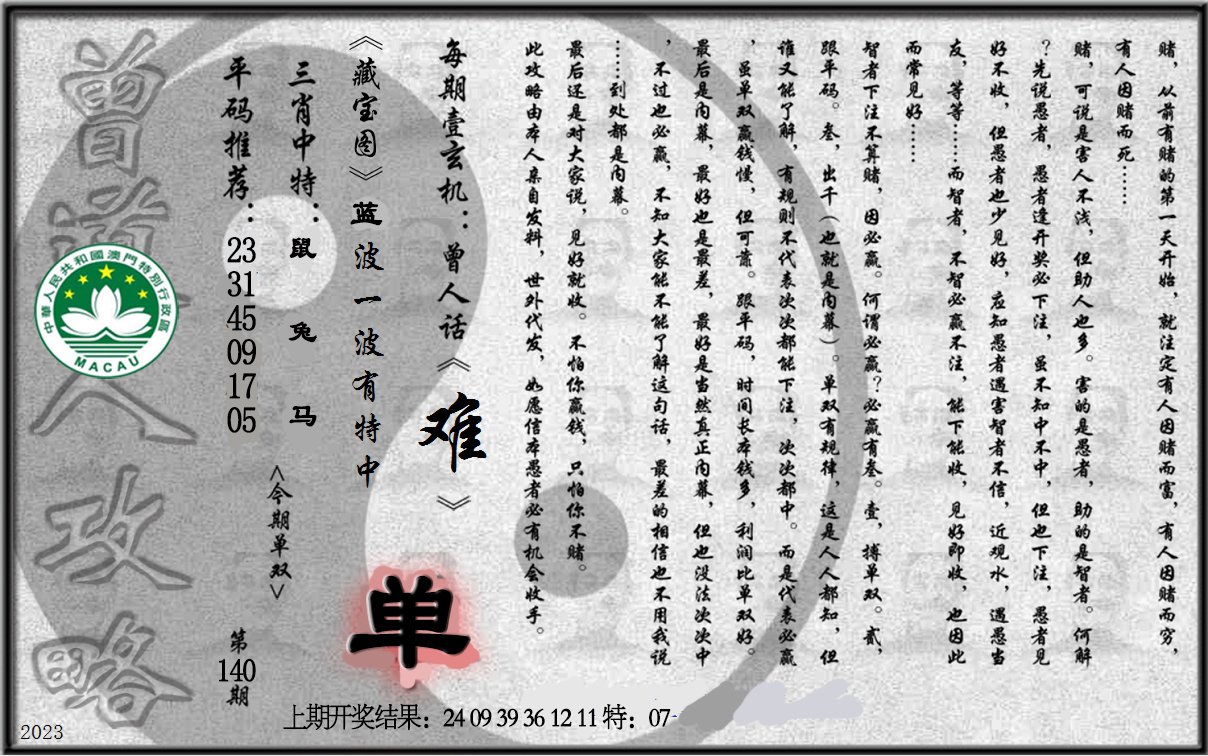 赌，从前有赌的第一天开始，就注定有人因赌而富，有人因赌而穷，
有人因赌而死……
赌，可说是害人不浅，但助人也多。害的是愚者，助的是智者。何解
？先说愚者，愚者逢开奖必下注，虽不知中不中，但也下注，愚者见
好不收，但愚者也少见好，应知愚者遇害智者不信，近观水，遇愚当
友，等等……而智者，不智必赢不注，能下能收，见好即收，也因此
而常见好……
智者下注不算赌，因必赢。何谓必赢？必赢有叁。壹，搏单双。贰，
跟平码。叁，出千（也就是内幕）。单双有规律，这是人人都知，但
谁又能了解，有规则不代表次次都能下注，次次都中。而是代表必赢
，虽单双赢钱慢，但可靠。跟平码，时间长本钱多，利润比单双好。
最后是内幕，最好也是最差，最好是当然真正内幕，但也没法次次中
，不过也必赢，不知大家能不能了解这句话，最差的相信也不用我说
……到处都是内幕。
最后还是对大家说，见好就收。不怕你赢钱，只怕你不赌。
此攻略由本人亲自发料，世外代发，如愿信本愚者必有机会收手。
每期壹玄机：曾人话《难》
《藏宝图》蓝波一波有特中
三肖中特：鼠 兔 马
<今期单双>
单
平码推荐：
23
31
45
09
17
05
第
140
期
曾道人攻略
中華人民共和國澳門特別行政區
MACAU
上期开奖结果：24 09 39 36 12 11 特：07-
2023